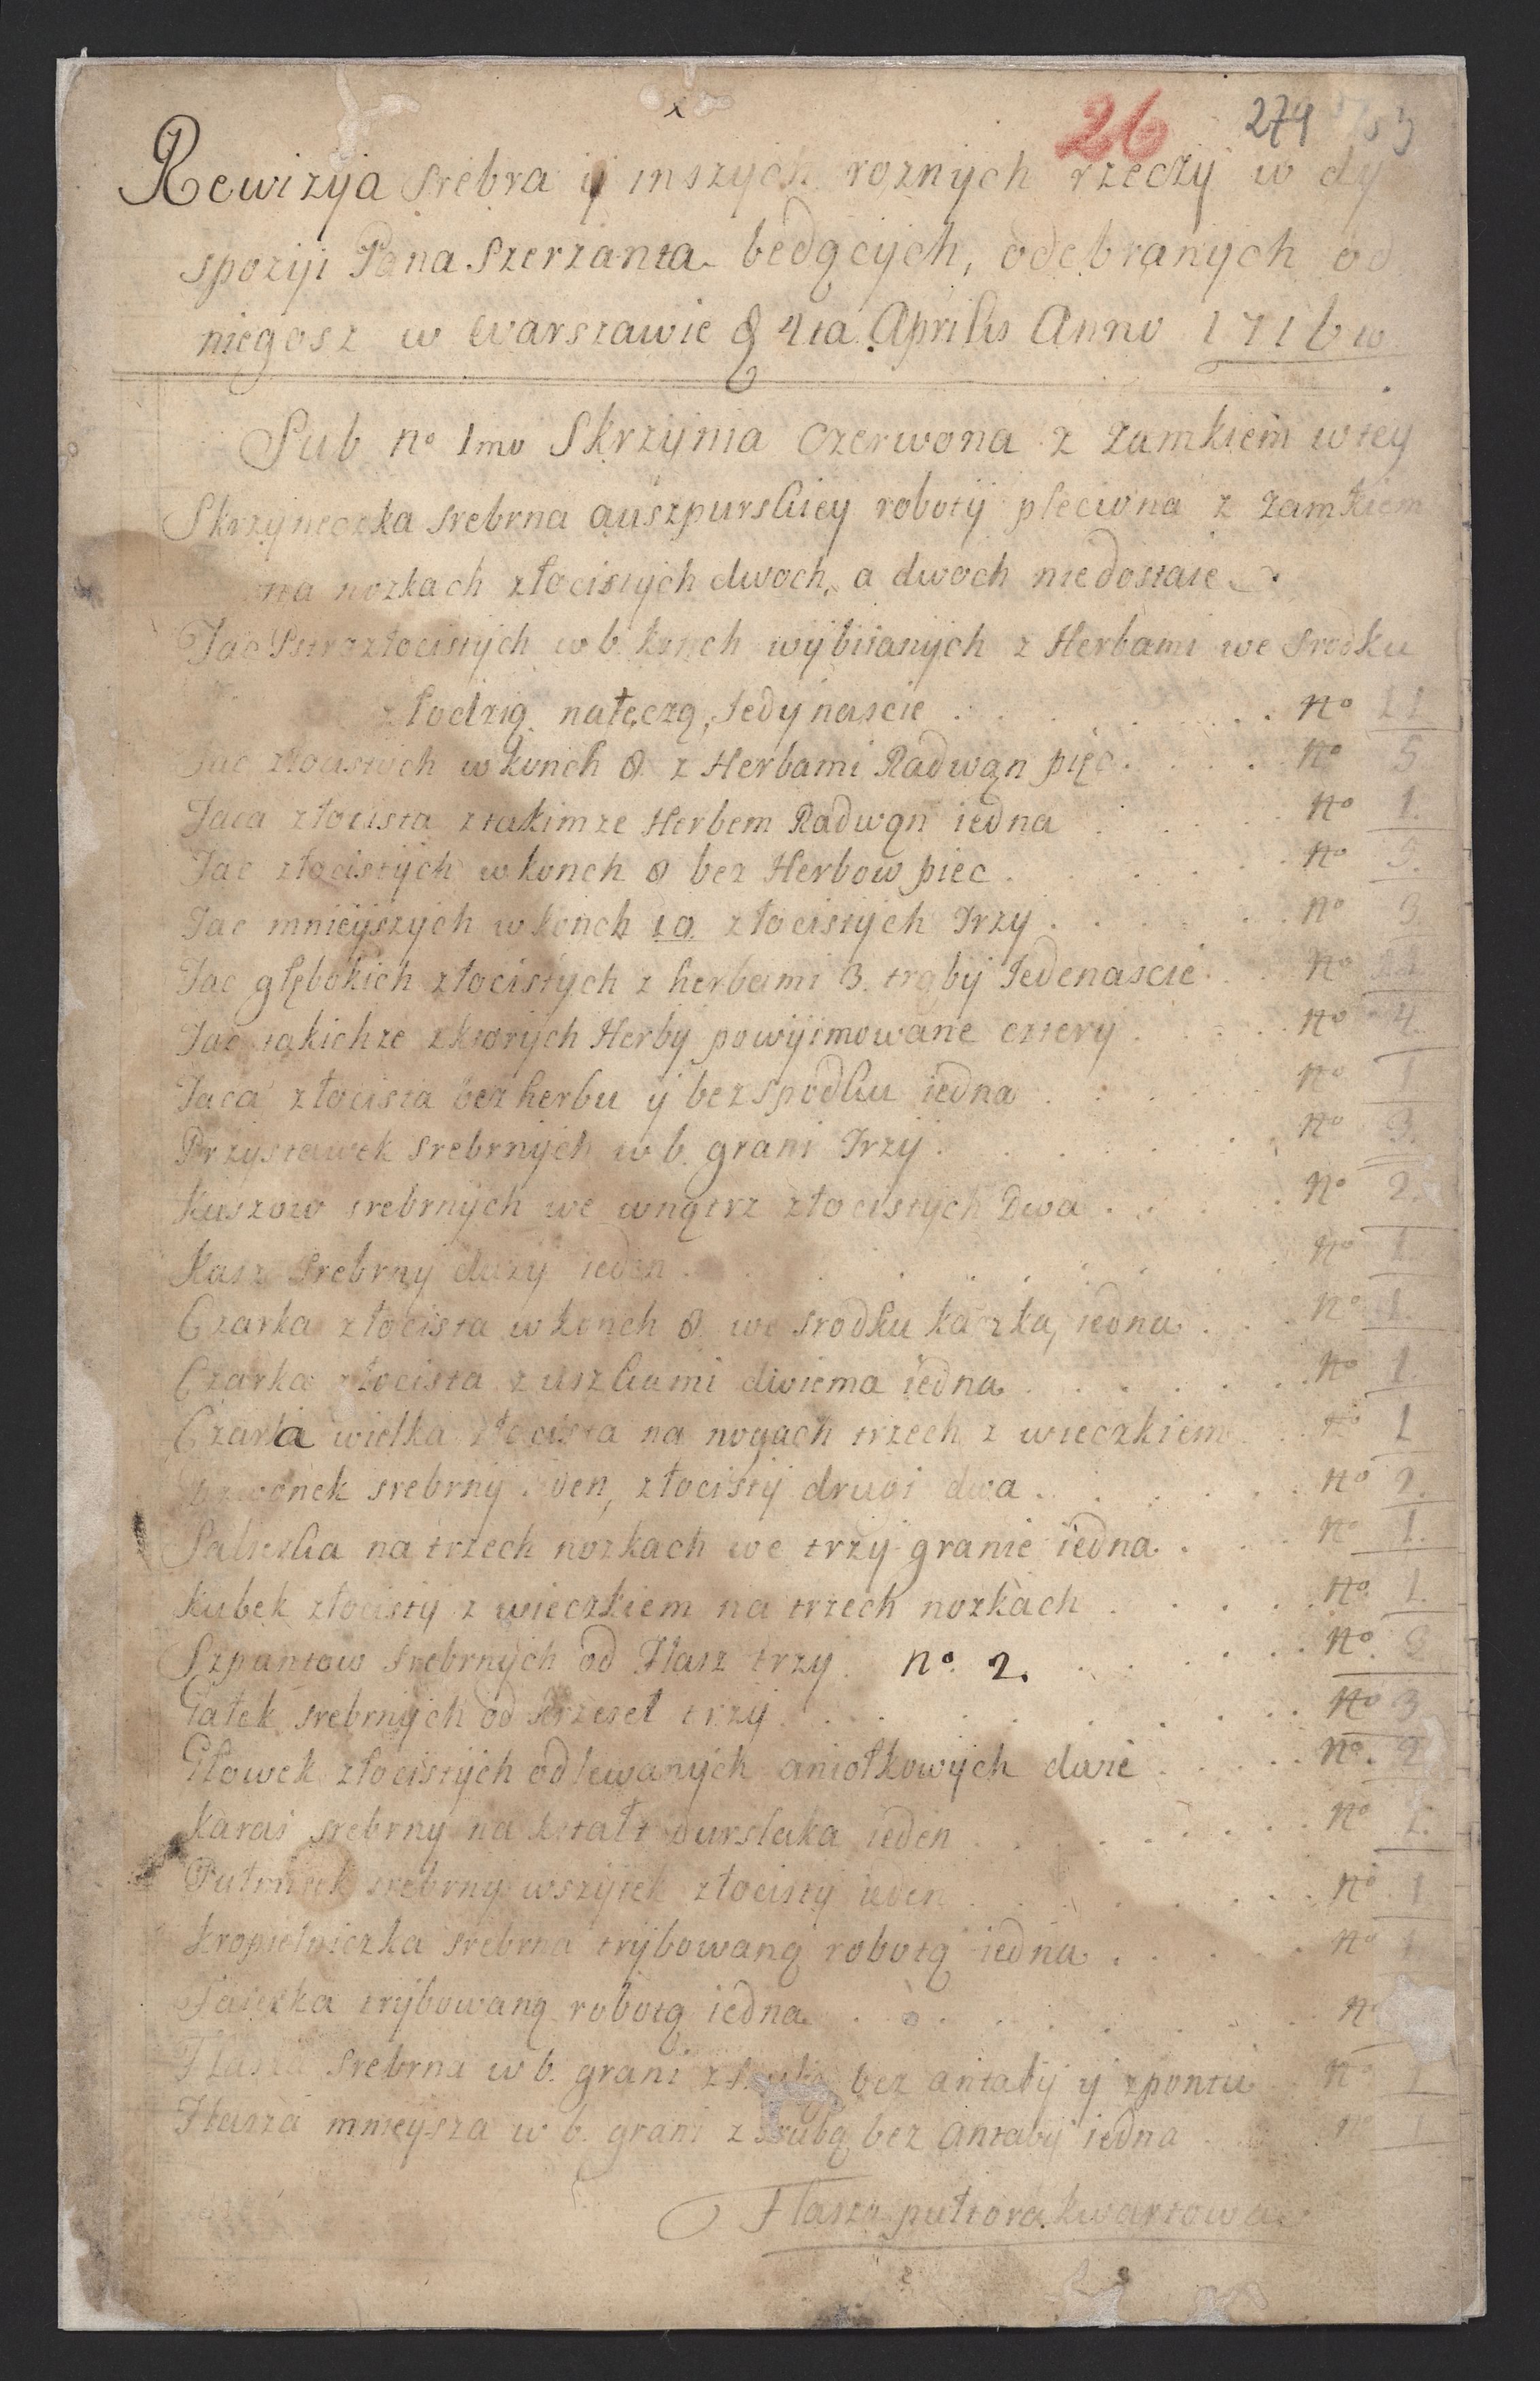 26 274
Rewizyja srebra y inszych roznych rzeczy w dy
spoziji Pana Szerzanta bedących, odebranych od
niegosz w Warszawie d 4ta Aprilis Anno 1716 w
Sub no 1mo Skrzynia czerwona z zamkiem w tey
Skrzyneczka srebrna auszpurskiey roboty pleciona z zamkiem
na nozkach złocistych dwoch, a dwoch niedostaie
Tac złocistych w 6. konch wybiianych z Herbami we srodku
złodzią nałęczą, Jedynascie no 11
Tac złocistych w konch 8. z Herbami Radwąn pięc no 5
Taca złocista z takimze Herbem Radwąn iedna no 1.
Tac złocistych w konch 8 bez Herbow piec no 5.
Tac mnieyszych w konch 10. złocistych Trzy no 3
Tac głębokich złocistych z herbami 3. trąby Jedenascie no 11
Tac takichze z ktorych Herby powyimowane cztery no 4.
Taca złocista bez herbu y bez spodku iedna no 1
Przystawek srebrnych w 6. grani Trzy no 3.
Kuszow srebrnych we wnątrz złocistych Dwa no 2.
Kusz srebrny duzy ieden no 1.
Czarka złocista w konch 8. we srodku kaczka, iedna no 1.
Czarka złocista z uszkami dwiema iedna no 1.
Czarka wielka złocista na nogach trzech z wieczkiem no 1
Dzwonek srebrny ieden, złocisty drugi dwa no 2.
Salserka na trzech nozkach we trzy granie iedna no 1.
Kubek złocisty z wieczkiem na trzech nozkach no 1.
Szpuntow srebrnych od Flasz trzy no. 2. no.
Gałek srebrnych od krzeseł trzy no 3
Głowek złocistych odlewanych aniołkowych dwie no. 2
Karaś srebrny na kształt durslaka ieden no 1.
srebrny wszytek złocisty ieden no 1
Kropielniczka srebrna trybowaną robotą iedna no 1
Tacżka trybowaną robotą iedna no
Flasza srebrna w 6. grani z szrubą bez antaby y szpontu no 1
Flasza mnieysza w 6. grani z szrubą bez antaby iedna no 1
Flasza pułtora kwartowa